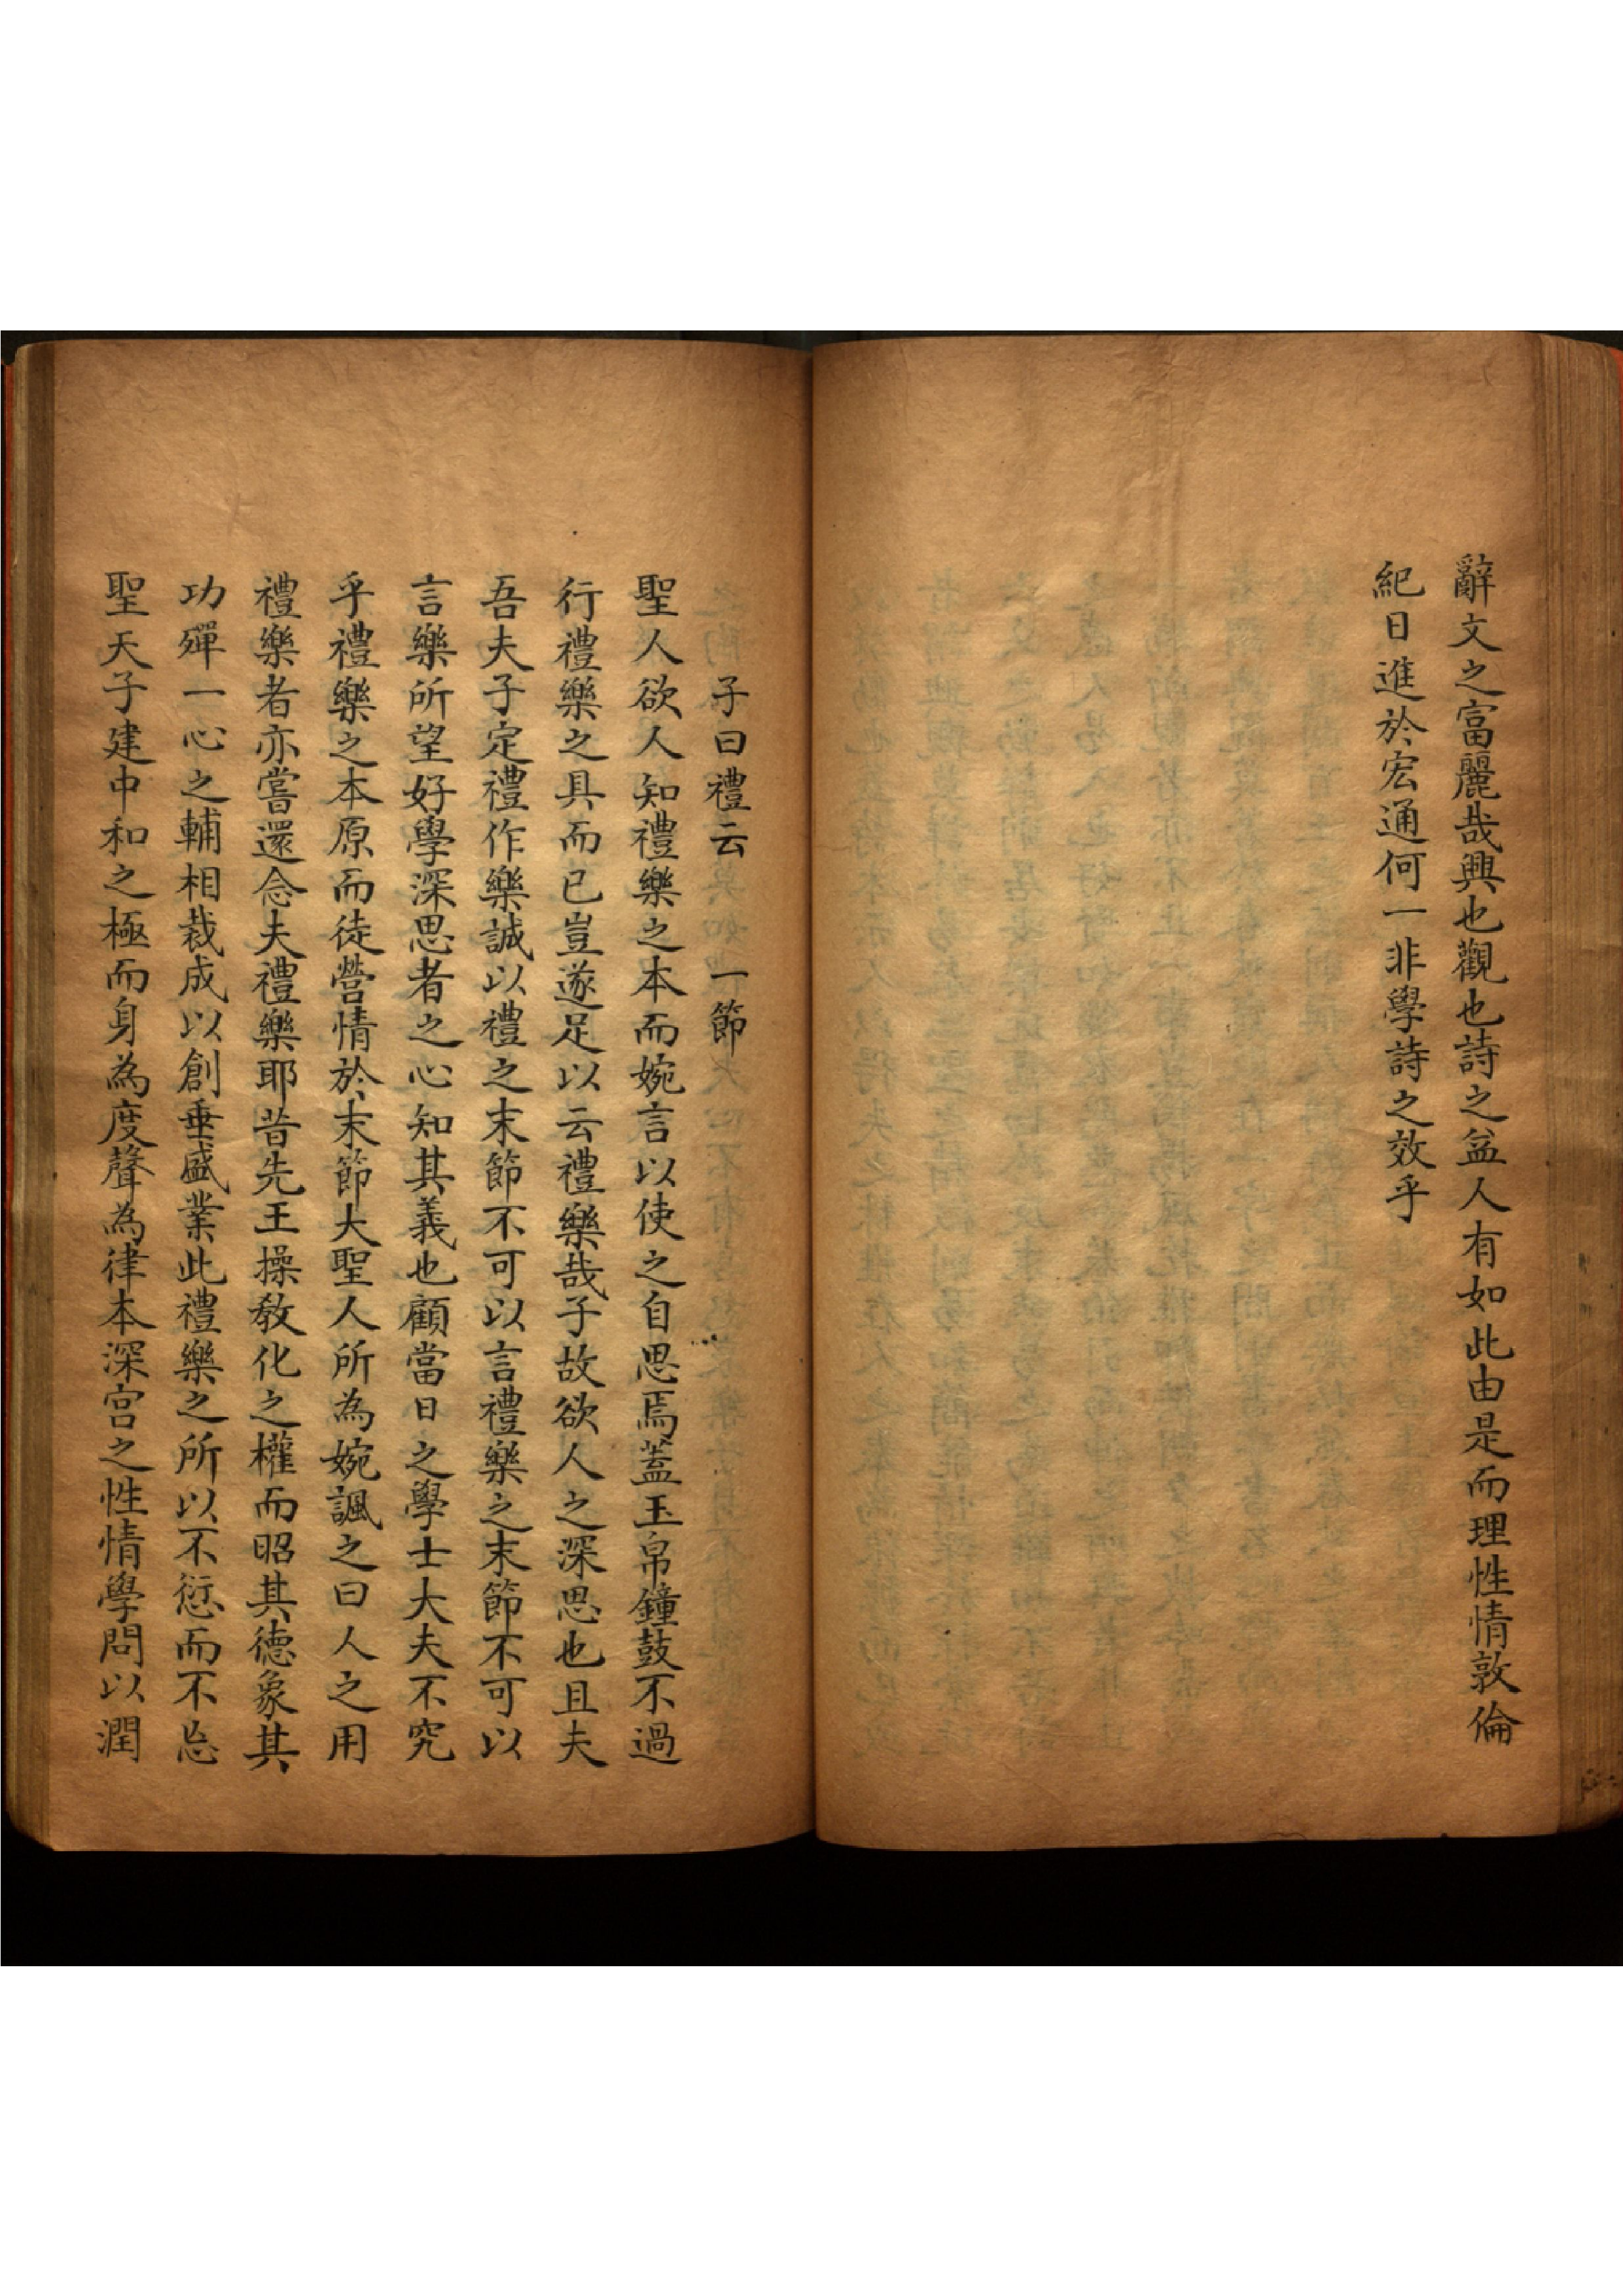 辭文之富麗哉興也觀也詩之益人有如此由是而理性情敦倫
紀日進於宏通何一非學詩之效乎
子曰禮云　一節
聖人欲人知禮樂之本而婉言以使之自思焉蓋玉帛鐘鼓不過
行禮樂之具而已豈遂足以云禮樂哉子故欲人之深思也且夫
吾夫子定禮作樂誠以禮之末節不可以言禮樂之末節不可以
言樂所望好學深思者之心知其義也顧當日之學士大夫不究
乎禮樂之本原而徒營情於末節大聖人所為婉諷之曰人之用
禮樂者亦嘗還念夫禮樂耶昔先王操教化之權而昭其德象其
功殫一心之輔相裁成以創垂盛業此禮樂之所以不愆而不忘
聖天子建中和之極而身為度聲為律本深宮之性情學問以潤